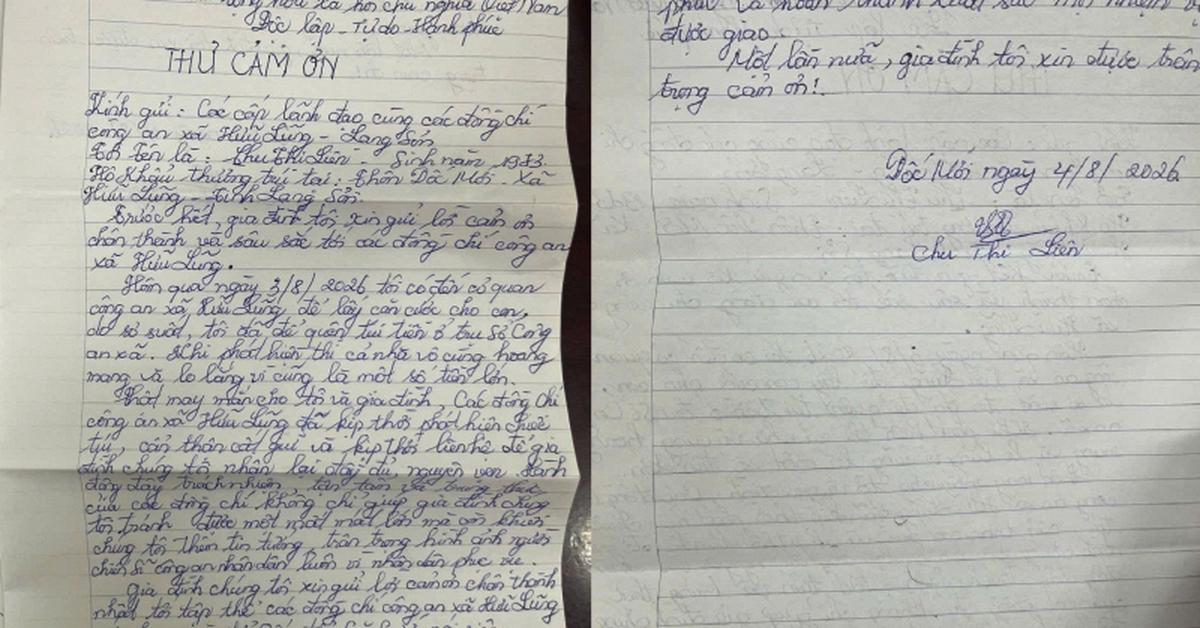 hòa xã hội chủ nghĩa Việt Nam
Độc lập - Tự do - Hạnh phúc
THƯ CẢM ƠN
Kính gửi: Các cấp lãnh đạo cùng các đồng chí
công an xã Hữu Lũng - Lạng Sơn
Tôi tên là: Chu Thị Liên - Sinh năm 1973.
Hộ khẩu thường trú tại: Thôn Dốc Mới - Xã
Hữu Lũng - Tỉnh Lạng Sơn.
Trước hết, gia đình tôi xin gửi lời cảm ơn
chân thành và sâu sắc tới các đồng chí công an
xã Hữu Lũng.
Hôm qua ngày 3/8/2026 tôi có đến cơ quan
công an xã Hữu Lũng để lấy căn cước cho con,
do sơ suất, tôi đã để quên túi tiền ở trụ sở Công
an xã. Khi phát hiện thì cả nhà vô cùng hoang
mang và lo lắng vì cũng là một số tiền lớn.
Thật may mắn cho tôi và gia đình, Các đồng chí
công an xã Hữu Lũng đã kịp thời phát hiện được
túi, cẩn thận cất giữ và kịp thời liên hệ để gia
đình chúng tôi nhận lại đầy đủ, nguyên vẹn. Hành
động đầy trách nhiệm, tận tâm và trung thực
của các đồng chí không chỉ giúp gia đình chúng
tôi tránh được một mất mát lớn mà còn khiến
chúng tôi thêm tin tưởng, trân trọng hình ảnh người
chiến sĩ công an nhân dân luôn vì nhân dân phục vụ.
Gia đình chúng tôi xin gửi lời cảm ơn chân thành
nhất tới tập thể các đồng chí công an xã Hữu Lũng
và hoàn thành xuất sắc mọi nhiệm vụ
được giao.
Một lần nữa, gia đình tôi xin được trân
trọng cảm ơn!.
Dốc Mới ngày 4/8/2026
Chu Thị Liên